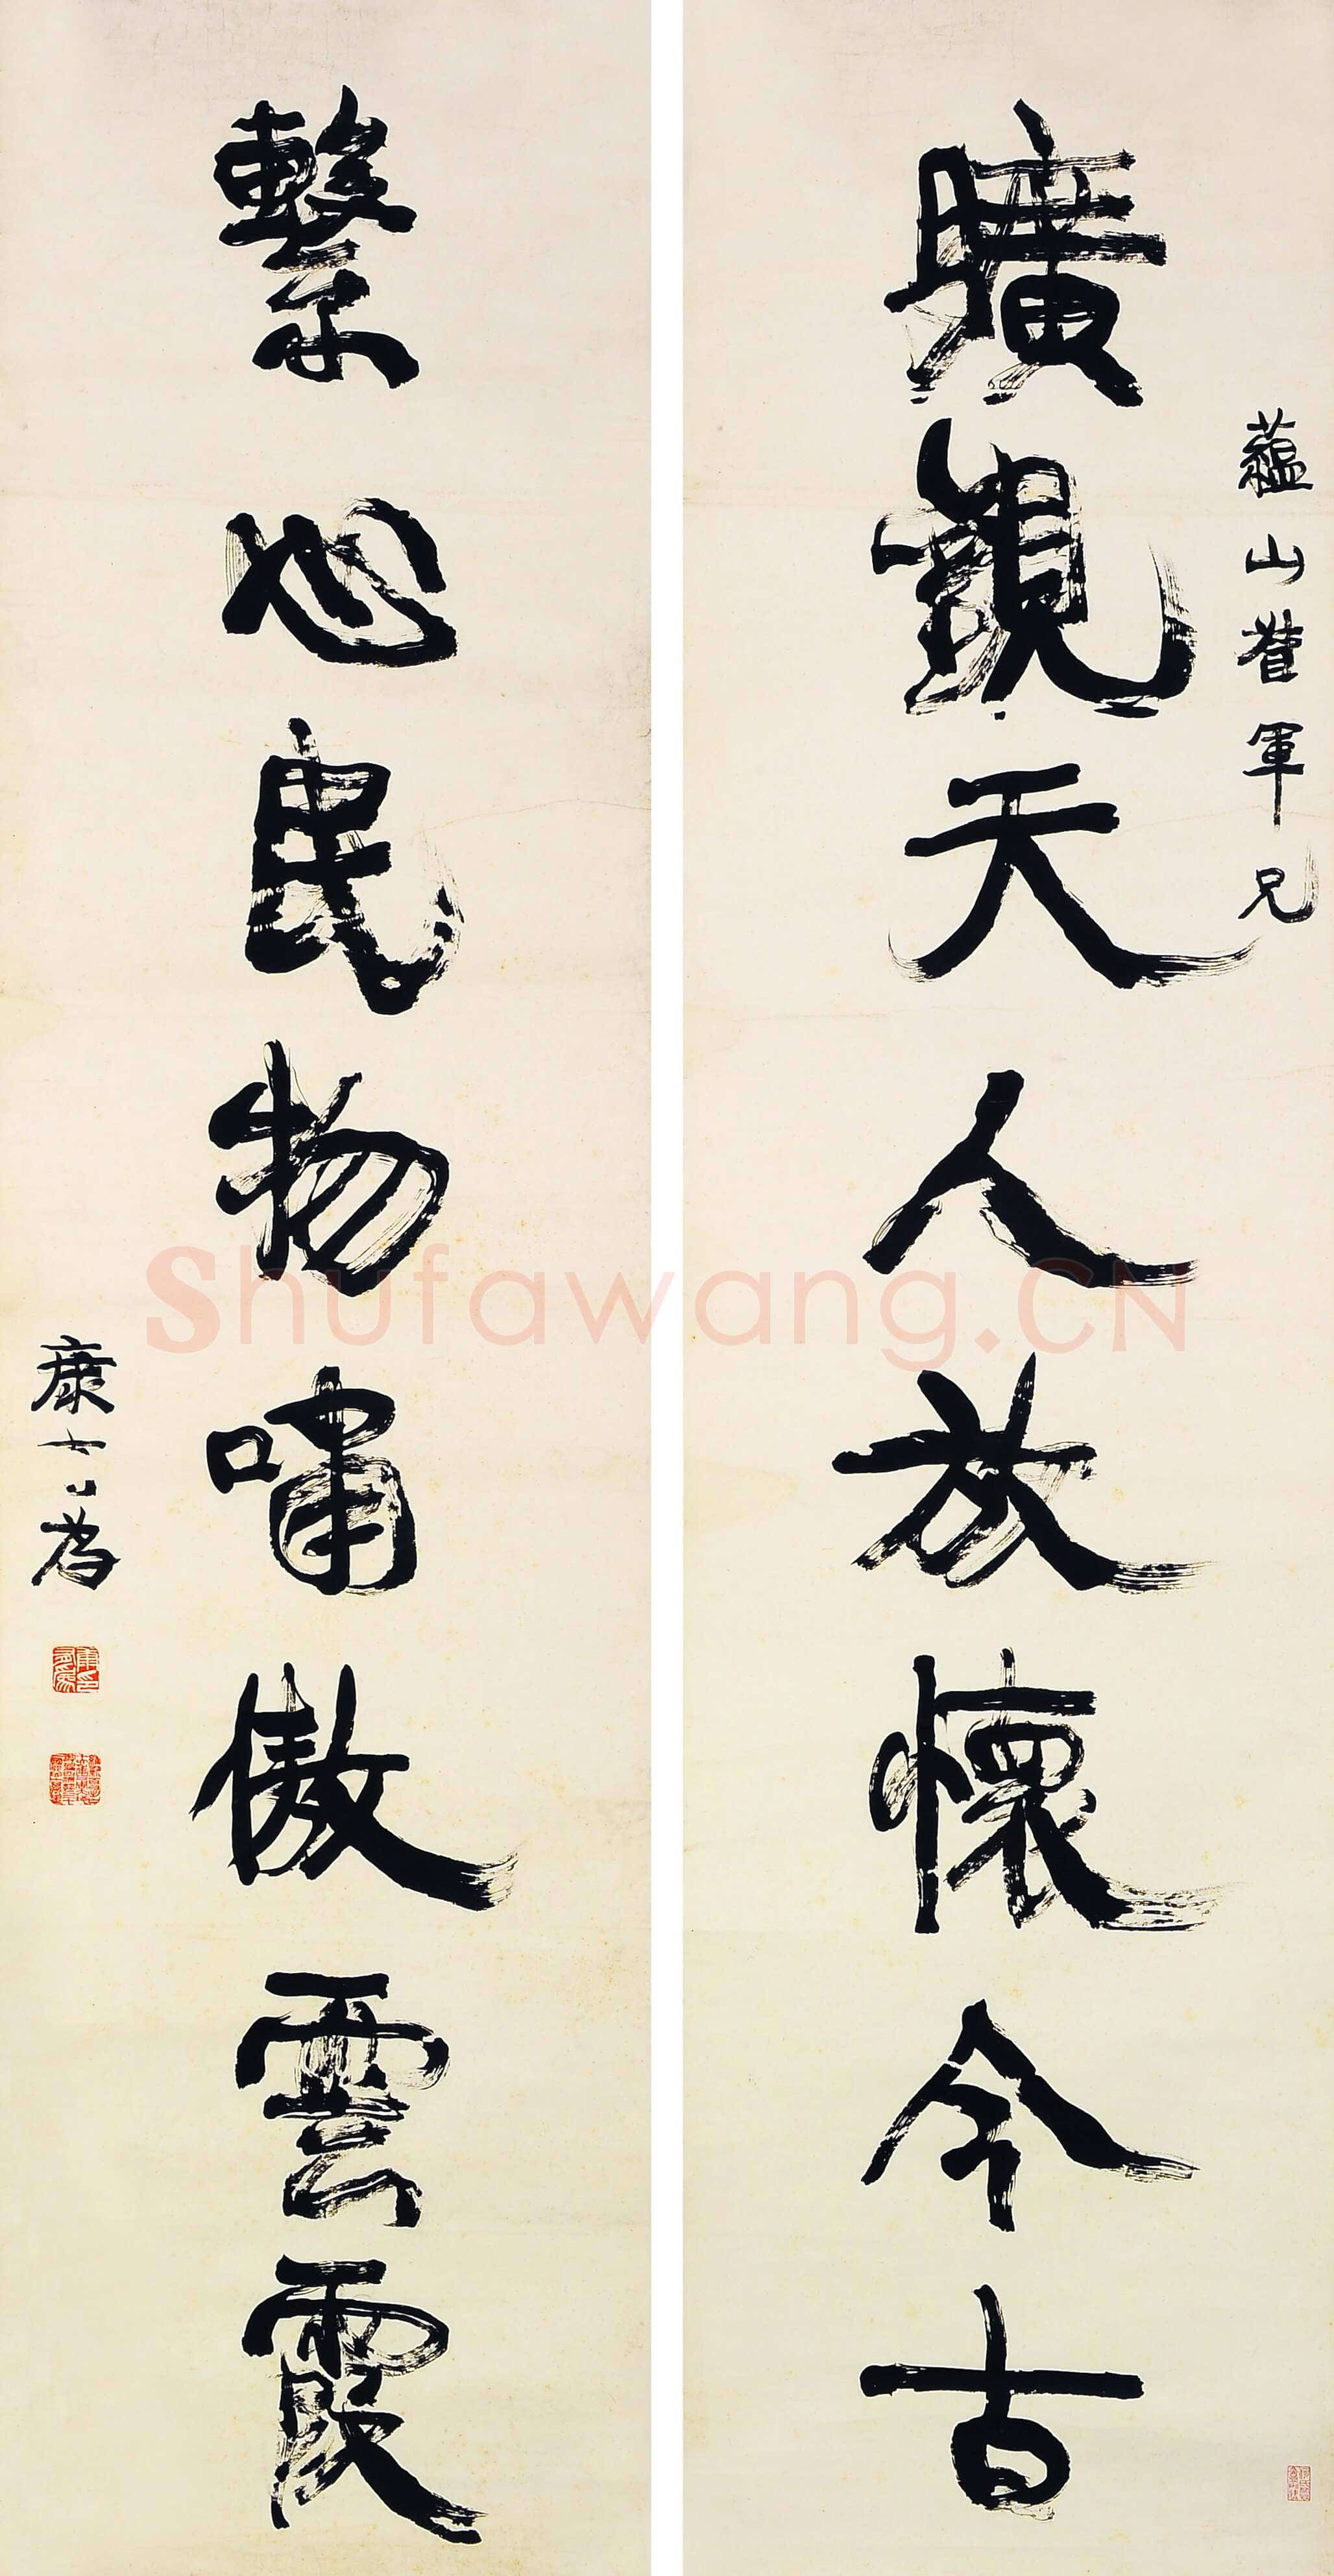 蘊山督軍兄
曠觀天人放懷今古
繫心民物嘯傲雲霞
康有為
shufawang.CN